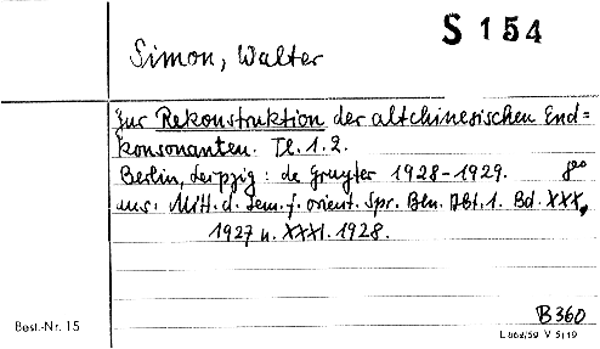 S 154
Simon, Walter
Zur Rekonstruktion der altchinesischen End=
konsonanten. Tl. 1.2.
Berlin, Leipzig: de Gruyter 1928-1929. 8°
aus: Mitt. d. Sem. f. orient. Spr. Bln. Abt. 1. Bd. XXX,
1927 u. XXXI. 1928.
B 360
Best.-Nr. 15
V 5119